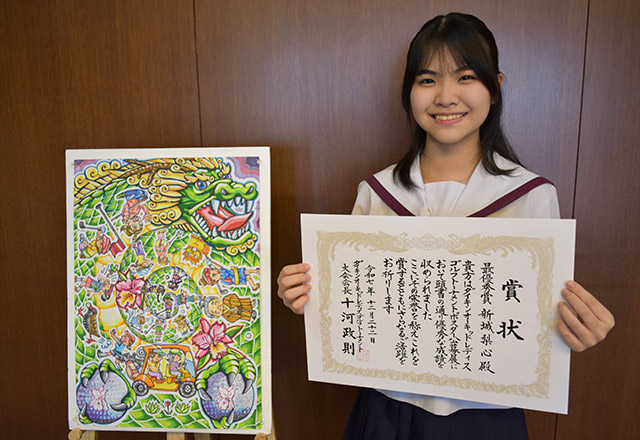 賞状
最優秀賞 新城梨心 殿
貴方はダイキンオーキッドレディス
ゴルフトーナメントポスター公募展に
おいて頭書の通り優秀な成績を
収められました
ここにその栄誉を称えこれを
賞するとともにさらなるご活躍を
お祈りします
令和七年 十二月二十二日
ダイキンオーキッドレディスゴルフトーナメント
大会会長 十河政則